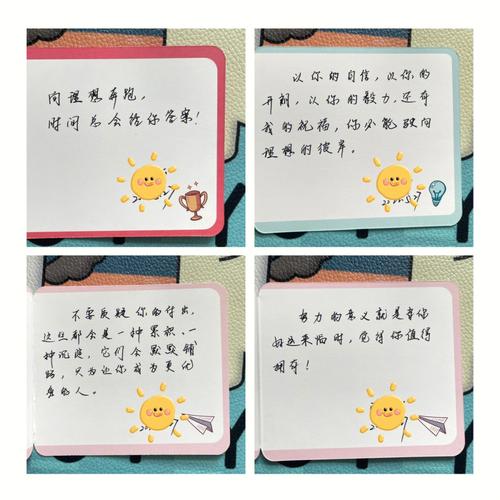 向理想奔跑，
时间总会给你答案！
以你的自信，以你的
开朗，以你的毅力，还有
我的祝福，你必能驶向
理想的彼岸。
不要质疑你的付出，
这些都会是一种累积、一
种沉淀，它们会默默铺
路，只为让你成为更优
秀的人。
努力的意义就是当你
好运来临时，觉得你值得
拥有！